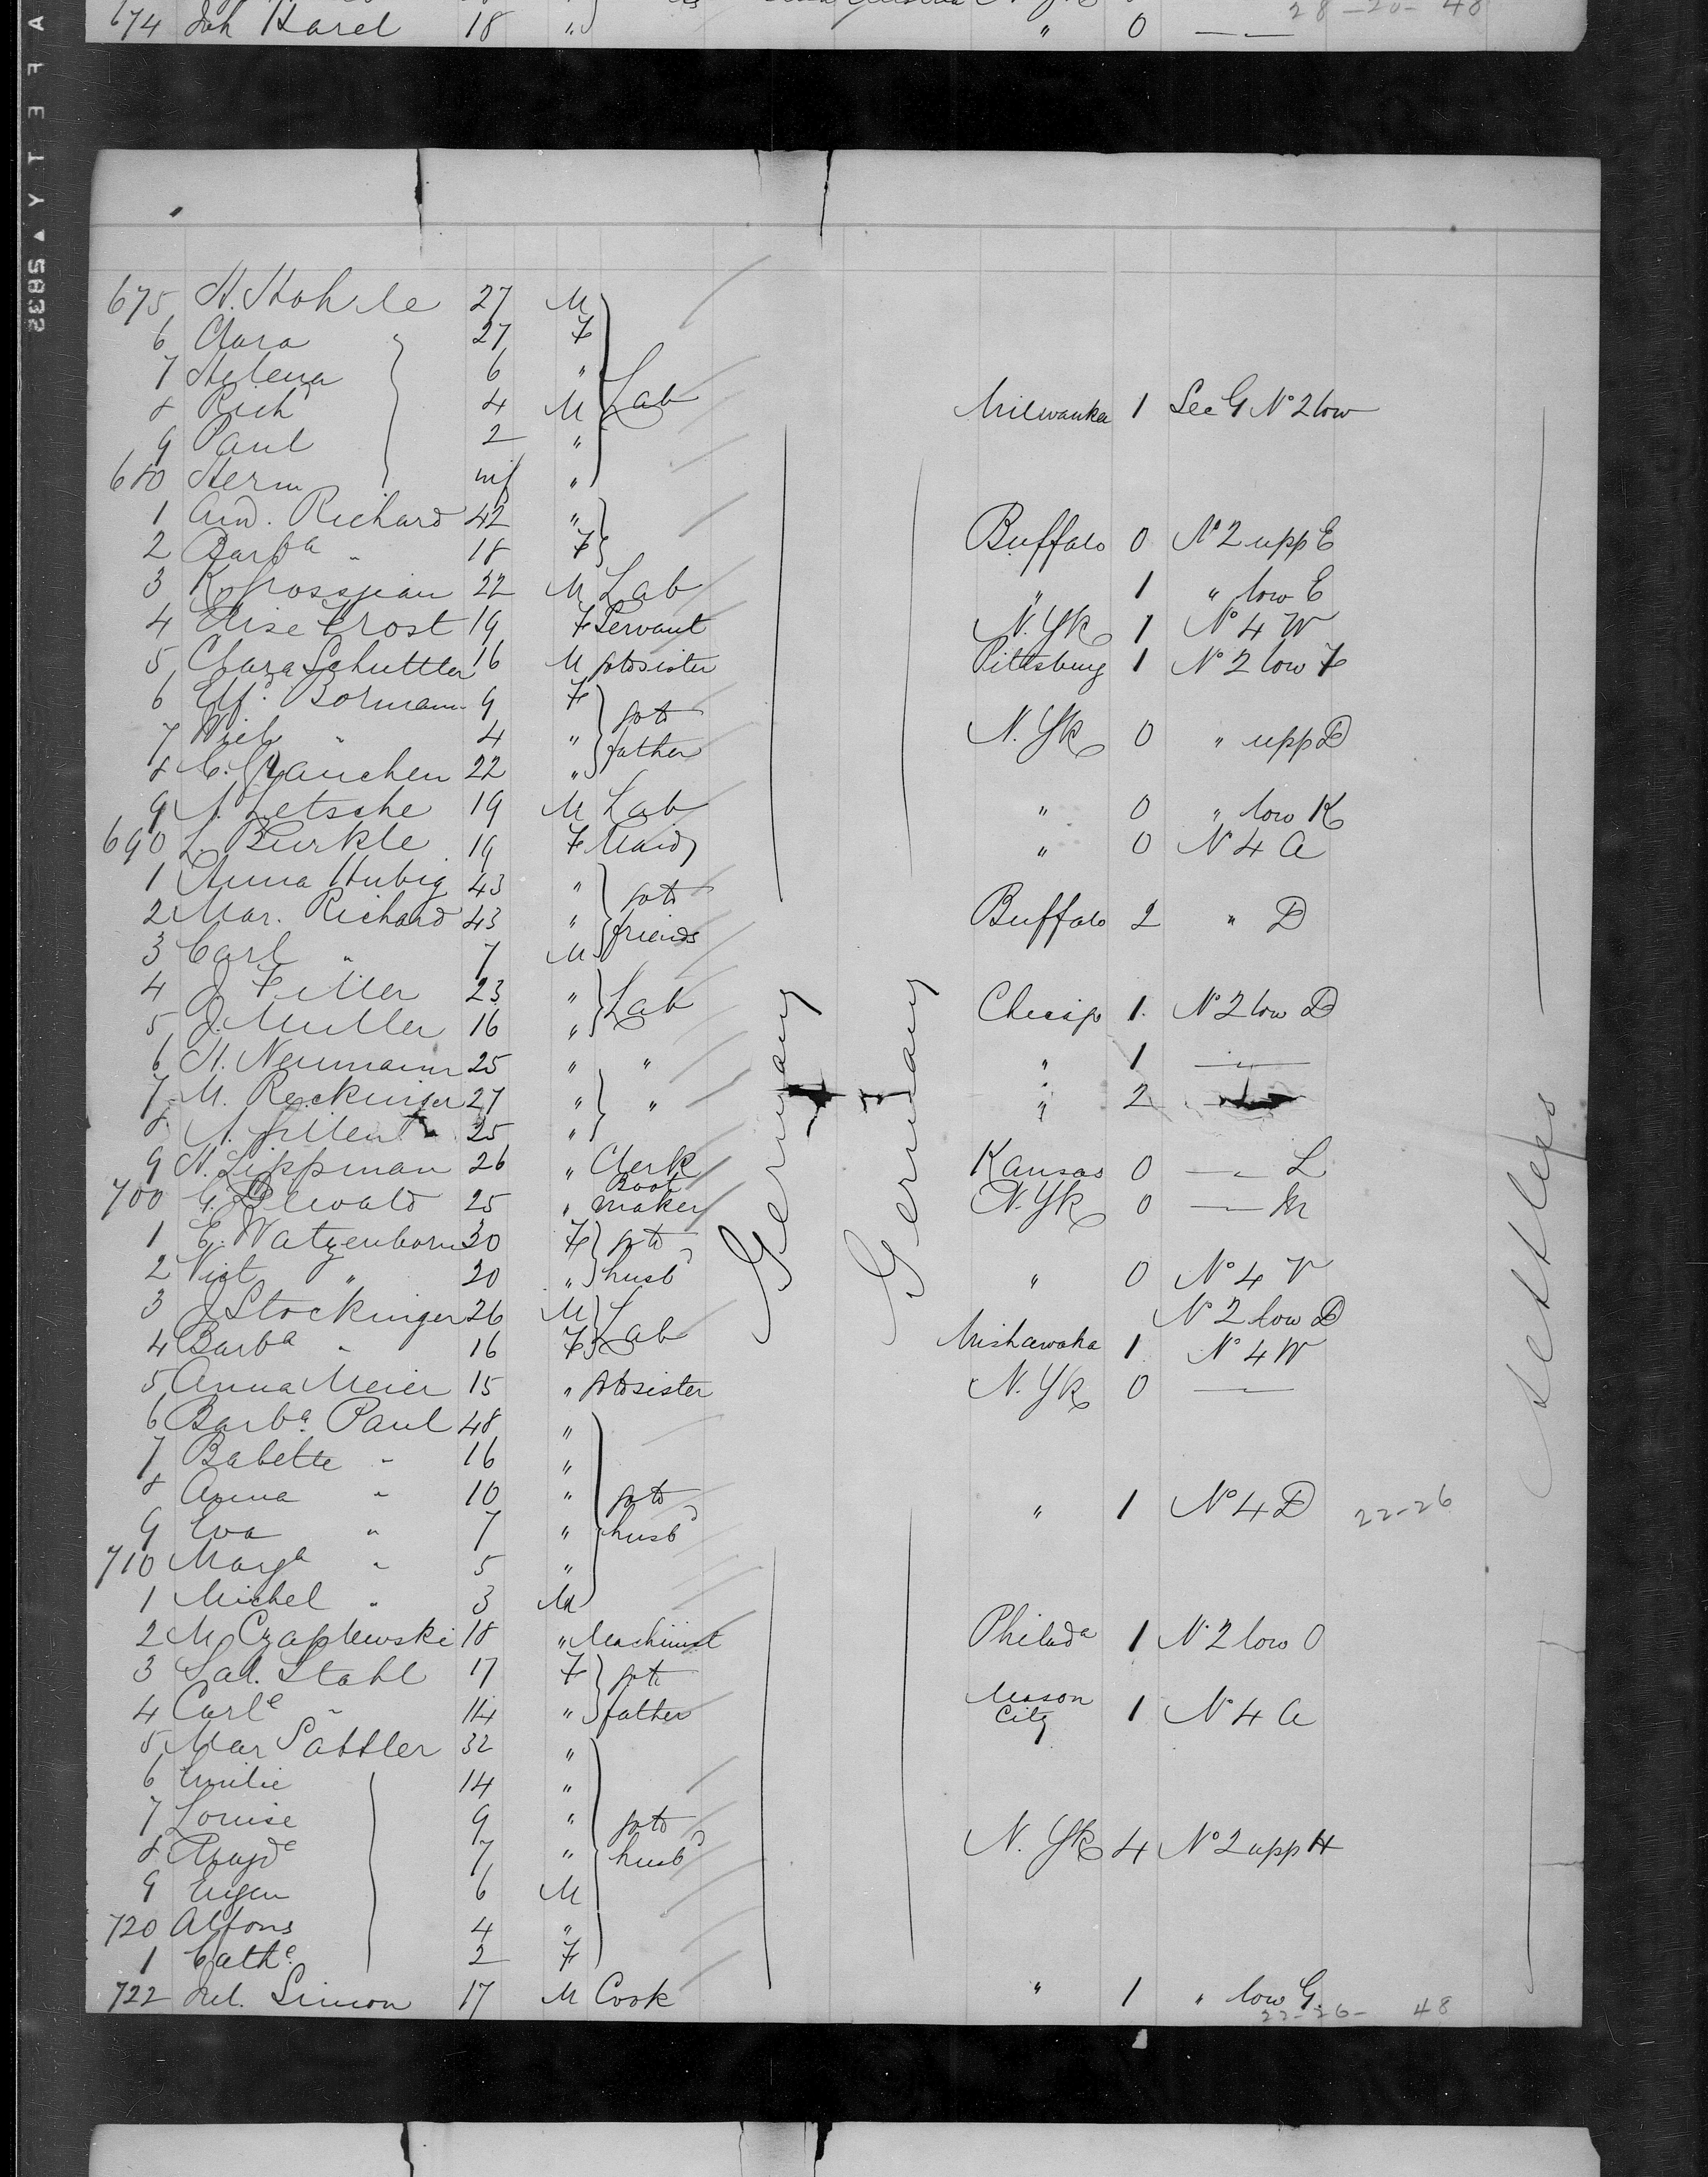 674 Joh Harel 18 " " 0 — 28-20- 48
675 H. Hohle 27 M
6 Clara 27 F
7 Helena 6 "
8 Richd 4 M Lab Milwaukee 1 Sec G No 2 low
9 Paul 2 "
680 Herm inf "
1 And. Richard 42 "
2 Barba " 18 F Buffalo 0 No 2 upp E
3 22 M Lab " 1 " low E
4 Elise Trost 19 F Servant N. Yk 1 No 4 W
5 Clara Schuttler 16 M gotosister Pittsburg 1 No 2 low F
6 Elfr. Bormann 9 F goto
7 " 4 " father N. Yk 0 " upp D
8 22 "
9 Letsche 19 M Lab " 0 " low K
690 L. Burkle 19 F Maid " 0 No 4 A
1 Anna Hubig 43 " goto
2 Mar. Richard 43 " friends Buffalo 2 " D
3 Carl " 7 M
4 J Filler 23 " Lab Chicago 1. No 2 low D
5 J. Muller 16 "
6 H. Neumann 25 " " " 1 —"—
7 M. Reckinger 27 " " " 2
8 25 "
9 H. Lippman 26 " Clerk Kansas 0 —"— L
700 G. 25 " Boot maker N. Yk 0 — M
1 E. Watzenborn 30 F goto
2 Vict " 20 " husbd " 0 No 4 V
3 J Stockinger 26 M Lab No 2 low D
4 Barba " 16 F Mishawaka 1 No 4 W
5 Anna Meier 15 " gotosister N. Yk 0 —
6 Barba. Paul 48 "
7 Babette " 16 "
8 Anna " 10 " goto " 1 No 4 D 22-26
9 Eva " 7 " husbd
710 Marga " 5 "
1 Michel " 3 M
2 M. Czaplewski 18 " Machinist Philada 1 No 2 low O
3 Sal. Stahl 17 F goto
4 Carle " 14 " father Mason City 1 No 4 A
5 Mar Sattler 32 "
6 Emilie 14 "
7 Louise 9 " goto
8 7 " husbd N. Yk 4 No 2 upp H
9 Eugen 6 M
720 Alfons 4 "
1 Cathe. 2 F
722 Jul. Simon 17 M Cook " 1 " low G.
22-26- 48
Germany
Germany
settlers